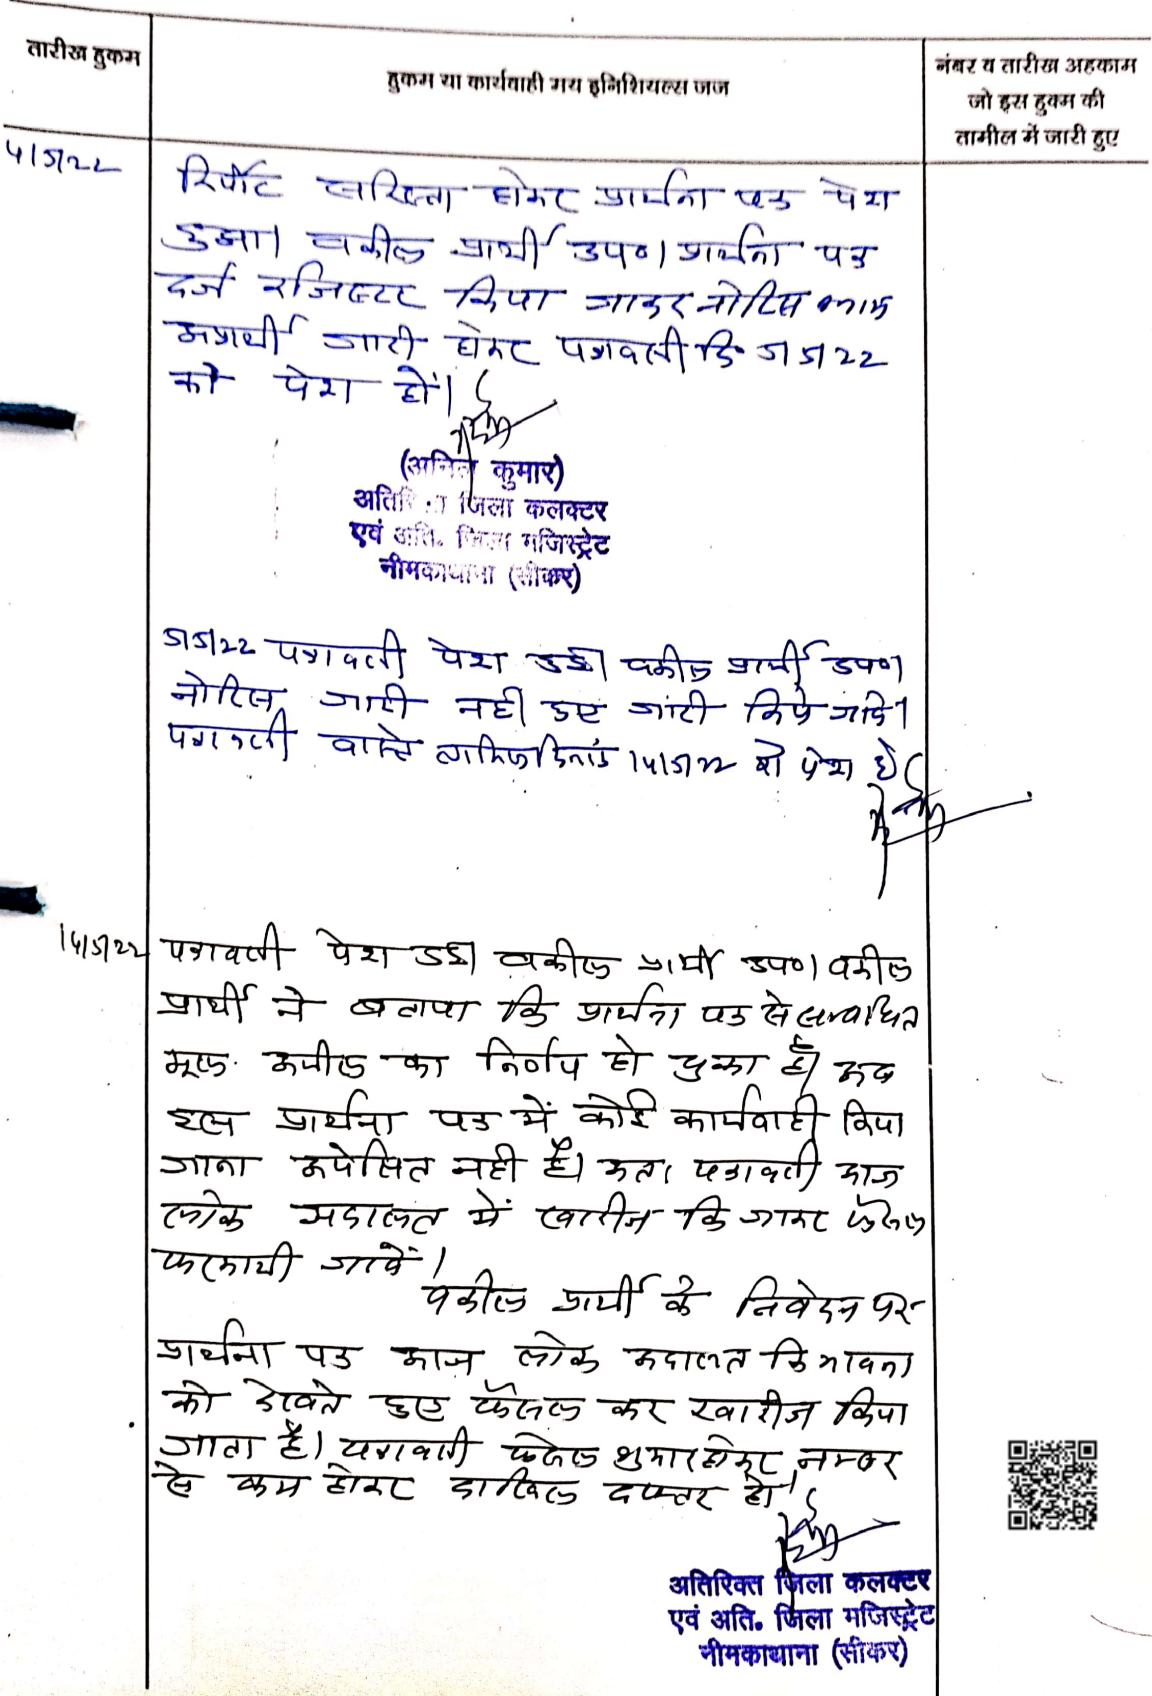 तारीख हुकम
हुकम या कार्यवाही मय इनिशियल्स जज
नंबर व तारीख अहकाम
जो इस हुक्म की
तामील में जारी हुए
4/5/22
रिर्पोट सरिस्ता होकर प्रार्थना पत्र पेश
हुआ। वकील प्रार्थी उप०। प्रार्थना पत्र
दर्ज रजिस्टर किया जाकर नोटिस बनाम
अप्रार्थी जारी होकर पत्रावली दि. 5/5/22
को पेश हों।
(अनिल कुमार)
अतिरिक्त जिला कलक्टर
एवं अति. जिला मजिस्ट्रेट
नीमकाथाना (सीकर)
5/5/22 पत्रावली पेश हुई। वकील प्रार्थी उप०।
नोटिस जारी नहीं हुए जारी किये जावे।
पत्रावली वास्ते तामिल दिनांक 14/5/22 को पेश हो
14/5/22
पत्रावली पेश हुई। वकील प्रार्थी उप०। वकील
प्रार्थी ने बताया कि प्रार्थना पत्र से सम्बंधित
मूल अपील का निर्णय हो चुका है। अब
इस प्रार्थना पत्र में कोई कार्यवाही किया
जाना अपेक्षित नही है। अतः पत्रावली आज
लोक अदालत में खारीज कि जाकर फैसल
फरमायी जावें।
वकील प्रार्थी के निवेदन पर
प्रार्थना पत्र आज लोक अदालत कि भावना
को देखते हुए फैसल कर खारीज किया
जाता है। पत्रावली फैसल शुमार होकर नम्बर
से कम होकर दाखिल दफ्तर हो।
अतिरिक्त जिला कलक्टर
एवं अति. जिला मजिस्ट्रेट
नीमकाथाना (सीकर)